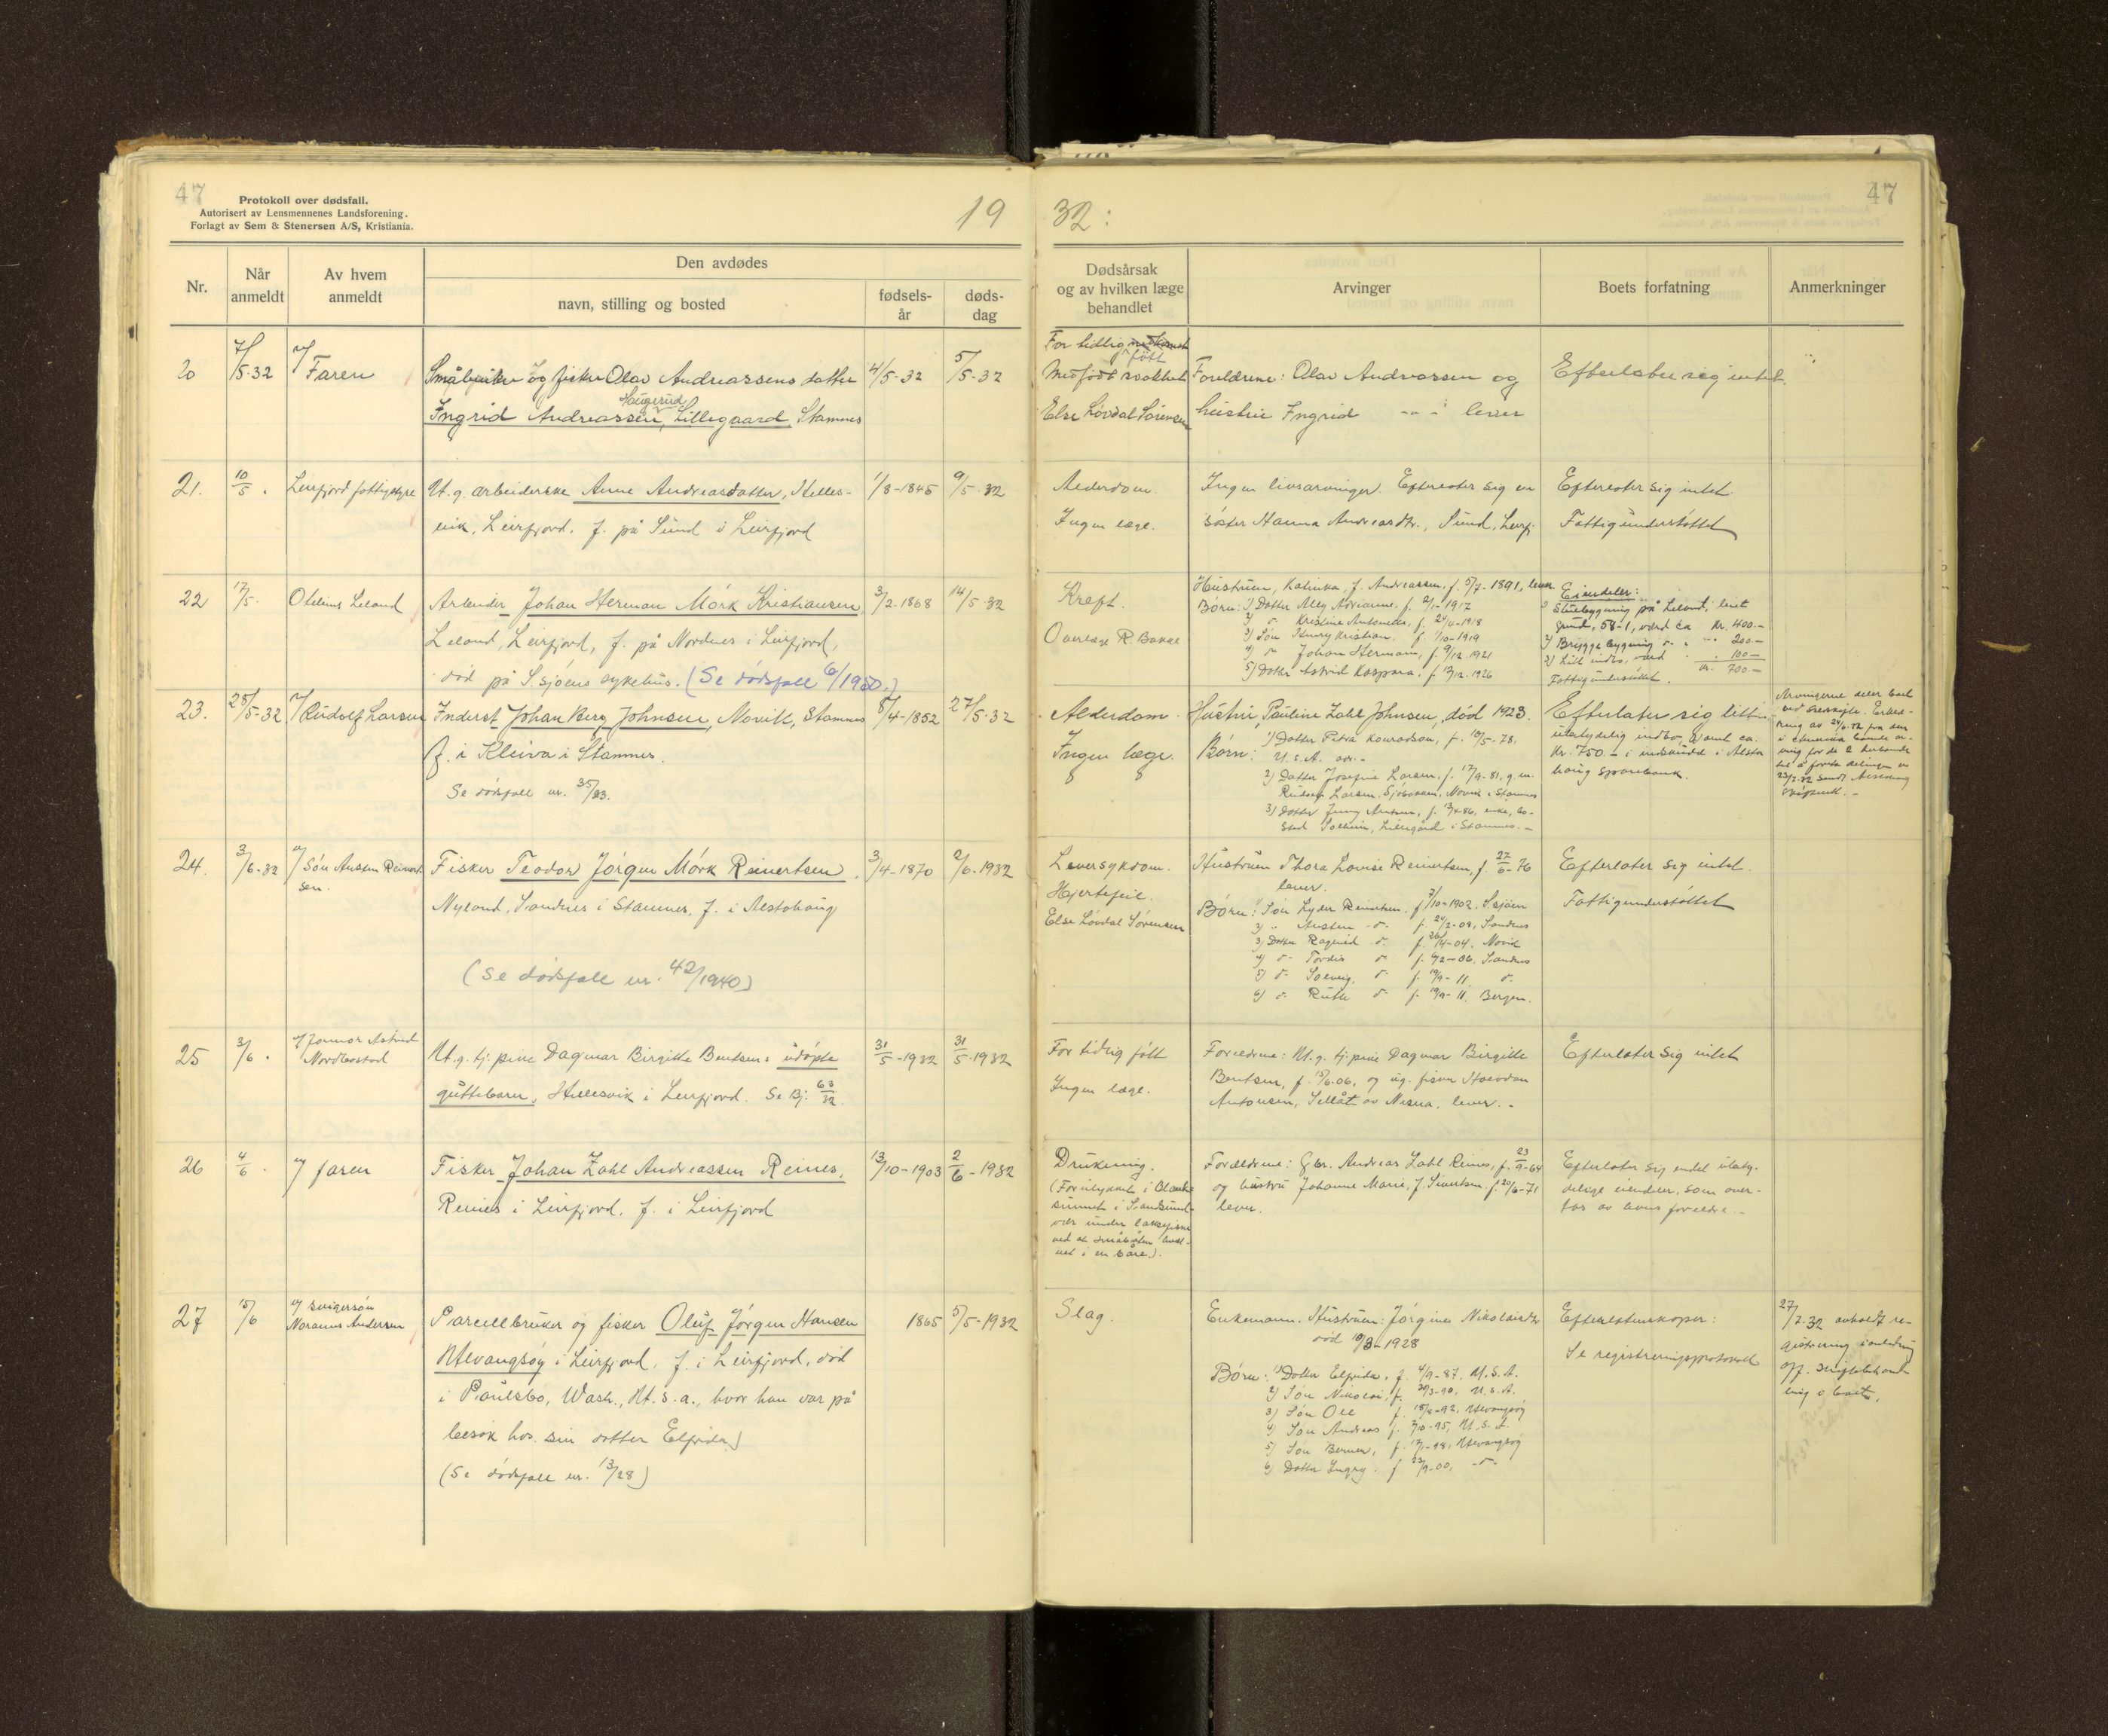 47
Protokoll over dødsfall.
Autorisert av Lensmennenes Landsforening.
Forlagt av Sem & Stenersen A/S, Kristiania.
19
32:
47
Nr.
Når anmeldt
Av hvem anmeldt
Den avdødes
navn, stilling og bosted
fødsels-
år
døds-
dag
Dødsårsak
og av hvilken læge
behandlet
Arvinger
Boets forfatning
Anmerkninger
20
7/5-32
v/ Faren
Småbruker og fisker Olav Andreassens datter
Haugerud
Ingrid Andreassen, Lillegaard, Stamnes
4/5-32
5/5-32
For tidlig
født
Medfødt svakhet
Else Løvdal Sørensen
Foreldrene: Olav Andreassen og
hustru Ingrid -"- lever
Efterlater sig intet.
21.
10/5 .
Leirfjord fattigstyre
U. g. arbeiderske Anne Andreasdatter, Helles-
vik, Leirfjord. f. på Sund i Leirfjord
1/8-1845
9/5-32
Alderdom.
Ingen læge.
Ingen livsarvinger. Efterlater sig en
søster Hanna Andreasdtr., Sund, Leirfj.
Efterlater sig intet.
Fattigunderstøttet
22
17/5.
Otelius Leland
Arbeider Johan Herman Mørk Kristiansen,
Leland, Leirfjord, f. på Nordnes i Leirfjord,
død på S.sjøens sykehus. (Se dødsfall 6/1950.)
3/2-1868
14/5-32
Kreft.
Overlæge R. Bakke
Hustruen, Kalinka, f. Andreassen, f. 5/7-1891, lever
Børn: 1) Datter Aley Adrianne. f. 2/1-1917
2) d- Kristine Antonette, f. 24/4-1918
3) Søn Henry Kristian. f. 1/10-1919
4) d- Johan Herman, f. 9/12 1921
5) Datter Astrid Kaspara. f. 13/12. 1926
Eiendeler:
1) Stuebygning på Leland, leiet
grund, 58-1, verd ca. kr. 400.-
2) Bryggebygning d- " -- 200.-
3) Litt indbo, verd " - 100-
kr. 700.-
Fattigunderstøttet.
23.
28/5-32
v/ Rudolf Larsen
Inderst Johan Berg Johnsen, Novik, Stamnes
f. i Kleiva i Stamnes.
Se dødsfall nr. 35/23.
8/4-1852
27/5-32
Alderdom
Ingen læge.
Hustru, Pauline Zahl Johnsen, død 1923.
Børn: 1) Datter Petra Konradson, f. 10/5-78.
U. S. A.
2) Datter Josefine Larsen. f. 17/9-81, g. m.
Rudolf Larsen, Sjøbakken, Novik i Stamnes
3) Datter Jenny Antsen, f. 13/4-86, enke, bo-
sted Solheim, Lillegård i Stamnes. -
Efterlater sig litt
ubetydelig indbo, samt ca.
kr. 750.- i indskudd i Alsta-
haug sparebank.
Arvingerne deler boet
24.
3/6-32
v/ Søn Austen Reinert-
sen.
Fisker Teodor Jørgen Mørk Reinertsen,
Nyland, Sandnes i Stamnes, f. i Alstahaug
(Se dødsfall nr. 42/1940)
3/4-1870
2/6-1932
Leversykdom.
Hjertefeil.
Else Løvdal Sørensen
Hustruen Thora Lovise Reinertsen, f. 27/6-76
lever.
Børn: 1) Søn Lyder Reinertsen. f. 7/10-1902. S.sjøen
2) " Austen -d- f. 24/2-09, Sandnes
3) Datter Ragnild d- f. 26/4-04. Novik
4) d- Tordis d- f. 6/2-06. Sandnes
5) d- Solveig. d- f. 19/9-11 d-
6) d- Ruth d- f. 19/9-11. Bergen.
Efterlater sig intet.
Fattigunderstøttet
25
3/6 .
v/ Jormor Astrid
Nordbostad
U. g. tj. pike Dagmar Birgitte Bentsens udøpte
guttebarn, Hellesvik i Leirfjord. Se Bj. 63/32
31/5-1932
31/5-1932
For tidlig født
Ingen læge.
Forældrene: U. g. tj. pike Dagmar Birgitte
Bentsen, f. 15/6.06, og ug. fisker Halvdan
Antonsen, Sellåt av Nesna, lever. -
Efterlater sig intet
26
4/6 .
v/ faren
Fisker Johan Zahl Andreassen Reines,
Reines i Leirfjord, f. i Leirfjord
13/10-1903
2/6-1932
Drukning.
(Forulykket i
Forældrene: Gbr. Andreas Zahl Reines, f. 23/9-64
og hustru Johanne Marie, f. Sivertsen. f. 20/6-71
lever.
Efterlater sig endel ubety-
delige eiendeler, som over-
tas av hans forældre. -
27
15/6
v/ svigersøn
Noranus Andersen
Parcellbruker og fisker Oluf Jørgen Hansen
Ulvangsøy i Leirfjord, f. i Leirfjord, død
i Paulsbo, Wash., U. s. a., hvor han var på
besøk hos sin datter Elfrida)
(Se dødsfall nr. 13/28)
1865
5/5-1932
Slag.
Enkemann. Hustruen: Jørgine Nikolaisdtr.
død 10/3-1928
Børn: 1) Datter Elfrida, f. 4/9-87. U. S. A.
2) Søn Nikolai, f. 20/3-90, U. S. A.
3) Søn Ole f. 18/5-92, Ulvangsøy
4) Søn Andreas f. 7/10-95, U. S. A.
5) Søn Berner, f. 17/1-98, Ulvangsøy
6) Datter Ingrg. f. 23/9-00, -d-
Efterlatenskaper:
Se registreringsprotokoll
27/7.32 avholdt re-
gistrering i anledning
off. skiftebehand-
ling i boet.